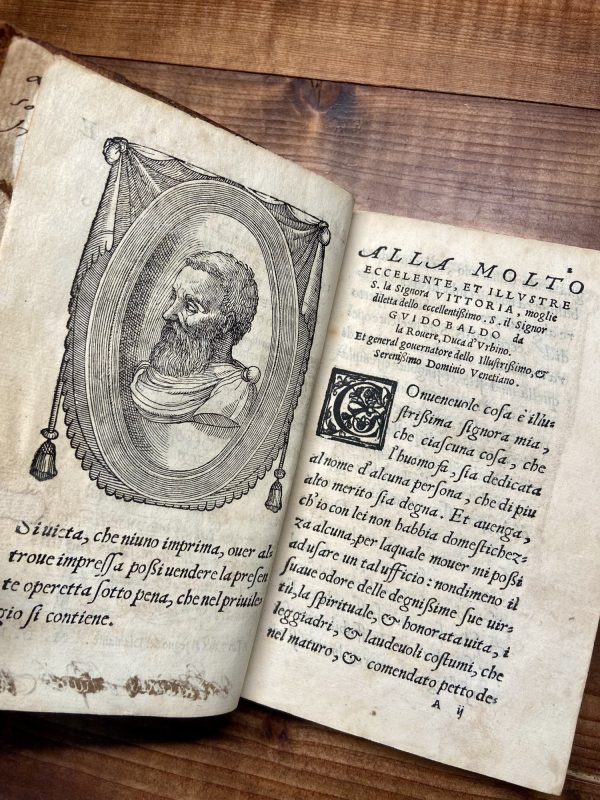 Si vieta, che niuno imprima, ouer al
troue impressa poßi vendere la presen
te operetta sotto pena, che nel priuile
gio si contiene.
ALLA MOLTO
ECCELENTE, ET ILLVSTRE
S. la Signora VITTORIA, moglie
diletta dello eccellentißimo. S. il Signor
GVIDOBALDO da
la Rouere, Duca d'Vrbino.
Et general gouernatore dello Illustrißimo, &
Sereniſſimo Dominio Venetiano.
COnueneuole cosa è illu-
strißima signora mia,
che ciascuna cosa, che
l'huomo fà, sia dedicata
al nome d'alcuna persona, che di piu
alto merito sia degna. Et auenga,
ch'io con lei non habbia domestichez-
za alcuna, per laquale mouer mi poßi
ad usare un tal ufficio: nondimeno il
suaue odore delle degnißime sue uir-
tù, la spirituale, & honorata uita, i
leggiadri, & laudeuoli costumi, che
nel maturo, & comendato petto de-
A ij